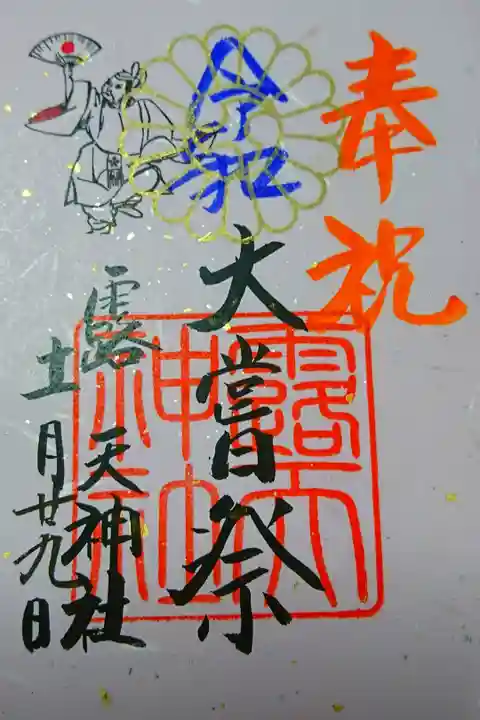 奉祝
令和
大嘗祭
露天神社
十一月廿九日
露天神社